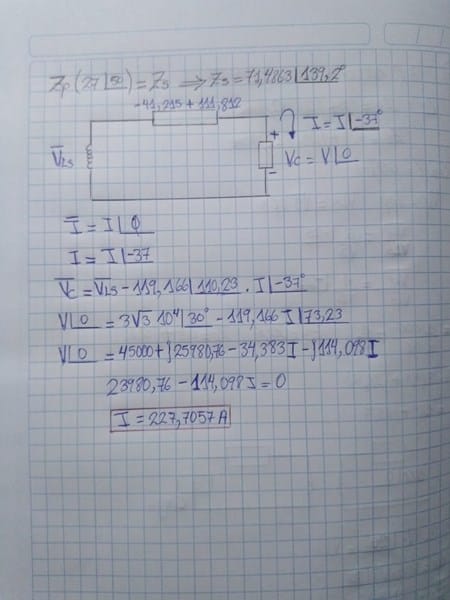 Zp(27∠50) = Zs ⟹ Zs = 71,4863∠139,2°
-41,215 + 111,812
V̅Ls
I = I∠-37°
+
Vc = V∠0
-
I̅ = I∠ϕ
I = I∠-37
V̅c = V̅Ls - 119,166∠110,23 · I∠-37°
V∠0 = 3√3 10⁴∠30° - 119,166 I∠73,23
V∠0 = 45000 + j25980,76 - 34,383I - j114,098I
23980,76 - 114,098 I = 0
I = 227,7057 A